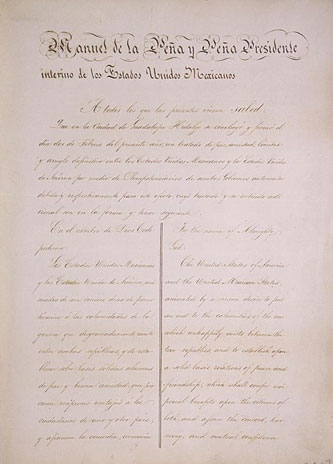 Manuel de la Peña y Peña Presidente
interino de los Estados Unidos Mexicanos
A todos los que las presentes vieren salud
Que en la Ciudad de Guadalupe Hidalgo se concluyó y firmó el
dia dos de Febrero del presente año, un tratado de paz, amistad, limites
y arreglo definitivo entre los Estados Unidos Mexicanos y los Estados Unidos
de America por medio de Plenipotenciarios de ambos Gobiernos autorizados
debida y respectivamente para este efecto, cuyo tratado y su articulo adi-
cional son en la forma y tenor siguiente.
En el nombre de Dios Todo-
poderoso
Los Estados Unidos Mexicanos
y los Estados Unidos de America, ani-
mados de un sincero deseo de poner
termino á las calamidades de la
guerra que desgraciadamente existe
entre ambas republicas, y de esta-
blecer sobre bases solidas relaciones
de paz y buena amistad, que pro-
curen reciprocas ventajas á los
ciudadanos de uno y otro pais,
y afiancen la concordia, armonia
In the name of Almighty
God:
The United States of America
and the United Mexican States,
animated by a sincere desire to put
an end to the calamities of the war
which unhappily exists between the
two republics, and to establish upon
a solid basis relations of peace and
friendship, which shall confer reci-
procal benefits upon the citizens of
both, and assure the concord, har-
mony, and mutual confidence